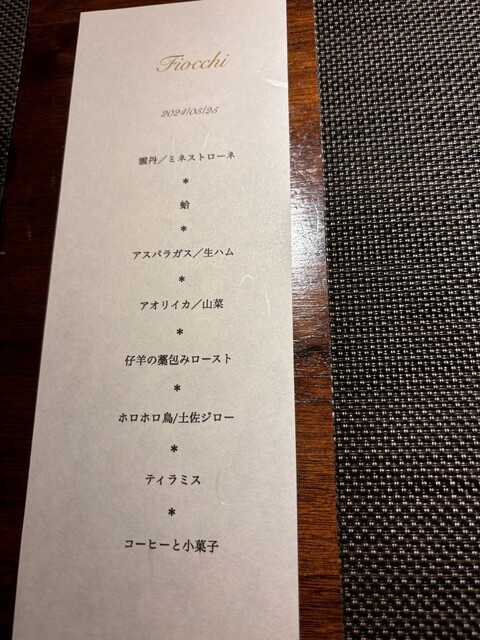 Fiocchi
2024/05/25
雲丹／ミネストローネ
*
蛤
*
アスパラガス／生ハム
*
アオリイカ／山菜
*
仔羊の藁包みロースト
*
ホロホロ鳥/土佐ジロー
*
ティラミス
*
コーヒーと小菓子